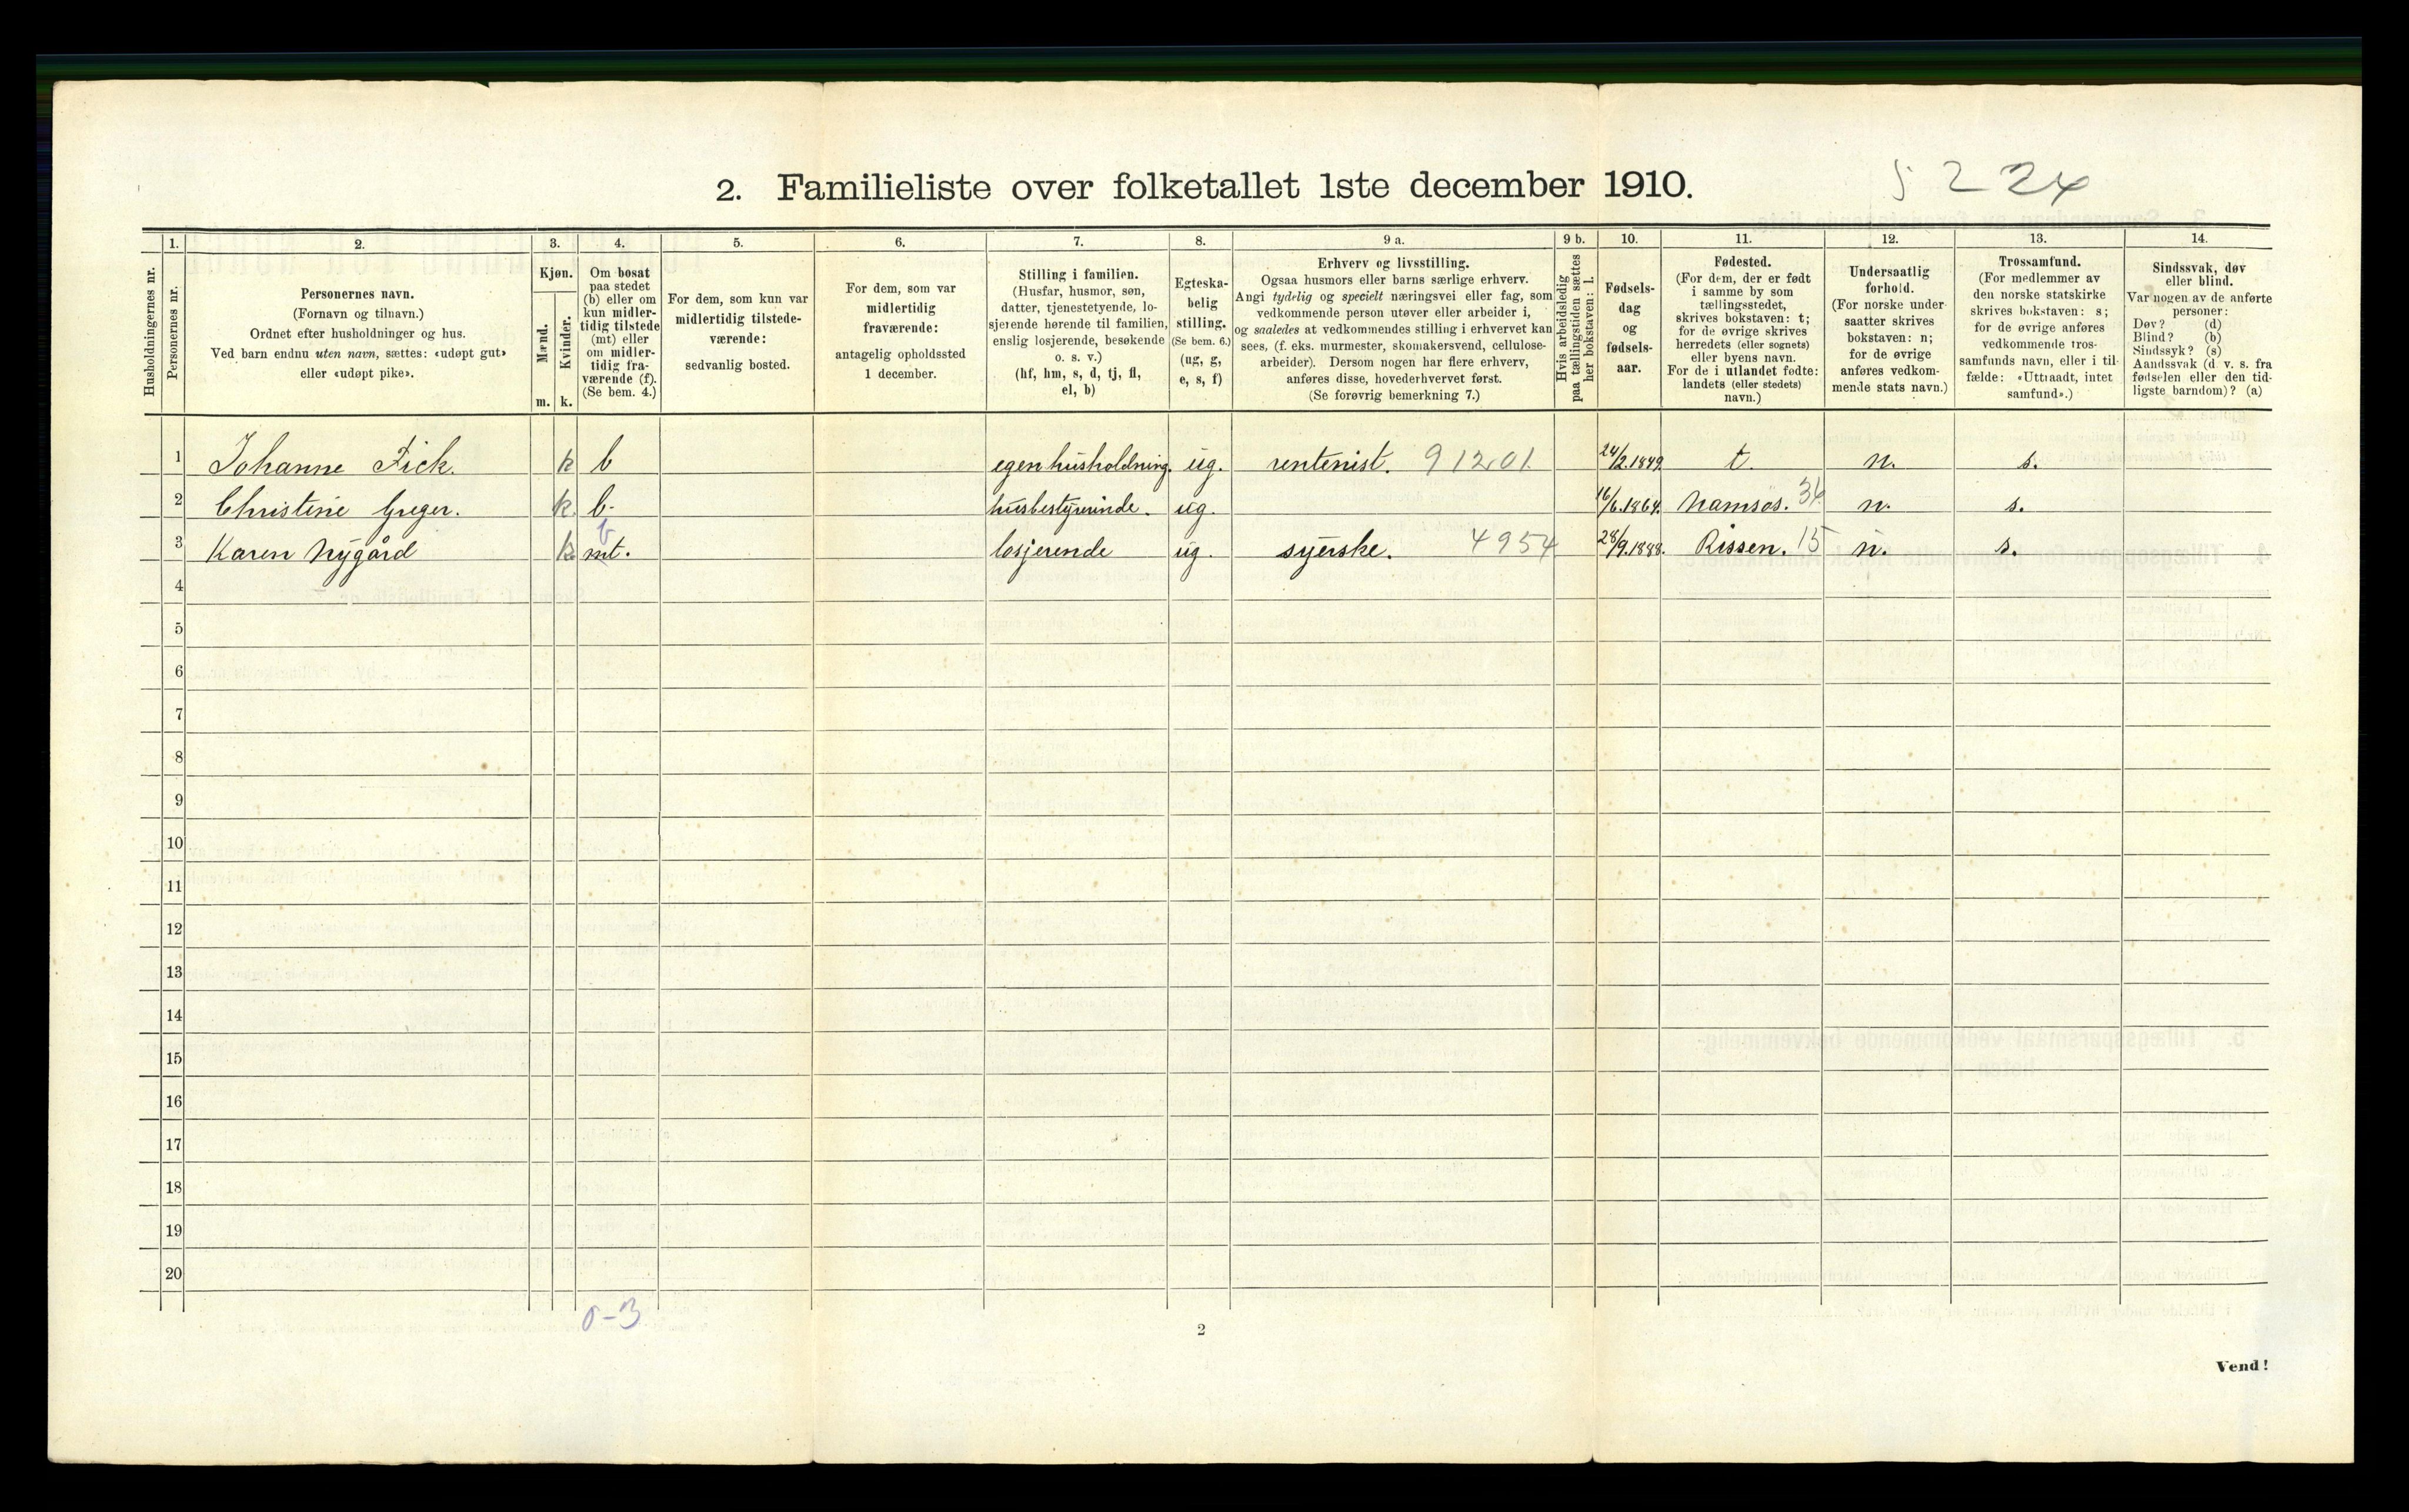 2. Familieliste over folketallet 1ste december 1910.
5224
Husholdningernes nr.
1.
Personernes nr.
2.
Personernes navn.
(Fornavn og tilnavn.)
Ordnet efter husholdninger og hus.
Ved barn endnu uten navn, sættes: «udøpt gut»
eller «udøpt pike».
3.
Kjøn.
Mænd.
Kvinder.
m. k.
4.
Om bosat
paa stedet
(b) eller om
kun midler-
tidig tilstede
(mt) eller
om midler-
tidig fra-
værende (f).
(Se bem. 4.)
5.
For dem, som kun var
midlertidig tilstede-
værende:
sedvanlig bosted.
6.
For dem, som var
midlertidig
fraværende:
antagelig opholdssted
1 december.
7.
Stilling i familien.
(Husfar, husmor, søn,
datter, tjenestetyende, lo-
sjerende hørende til familien,
enslig losjerende, besøkende
o. s. v.)
(hf, hm, s, d, tj, fl,
el, b)
8.
Egteska-
belig
stilling.
(Se bem. 6.)
(ug, g,
e, s, f)
9 a.
Erhverv og livsstilling.
Ogsaa husmors eller barns særlige erhverv.
Angi tydelig og specielt næringsvei eller fag, som
vedkommende person utøver eller arbeider i,
og saaledes at vedkommendes stilling i erhvervet kan
sees, (f. eks. murmester, skomakersvend, cellulose-
arbeider). Dersom nogen har flere erhverv,
anføres disse, hovederhvervet først.
(Se forøvrig bemerkning 7.)
9 b.
Hvis arbeidsledig
paa tællingstiden sættes
her bokstaven: l.
10.
Fødsels-
dag
og
fødsels-
aar.
11.
Fødested.
(For dem, der er født
i samme by som
tællingsstedet,
skrives bokstaven: t;
for de øvrige skrives
herredets (eller sognets)
eller byens navn.
For de i utlandet fødte:
landets (eller stedets)
navn.)
12.
Undersaatlig
forhold.
(For norske under-
saatter skrives
bokstaven: n;
for de øvrige
anføres vedkom-
mende stats navn.)
13.
Trossamfund.
(For medlemmer av
den norske statskirke
skrives bokstaven: s;
for de øvrige anføres
vedkommende tros-
samfunds navn, eller i til-
fælde: «Uttraadt, intet
samfund».)
14.
Sindssvak, døv
eller blind.
Var nogen av de anførte
personer:
Døv? (d)
Blind? (b)
Sindssyk? (s)
Aandssvak (d. v. s. fra
fødselen eller den tid-
ligste barndom)? (a)
1 Johanne Fick. k b egen husholdning. ug. rentenist. 91201 24/2.1849. t. n. s.
2 Christine Greger. k. b. husbestyrerinde. ug. 16/6.1864. Namsos. 36 n. s.
b
3 Karen Nygård k. mt. losjerende ug. syerske. 4954 28/9.1888. Rissen. 15 n. s.
4
5
6
7
8
9
10
11
12
13
14
15
16
17
18
19
20
0-3
2
Vend!